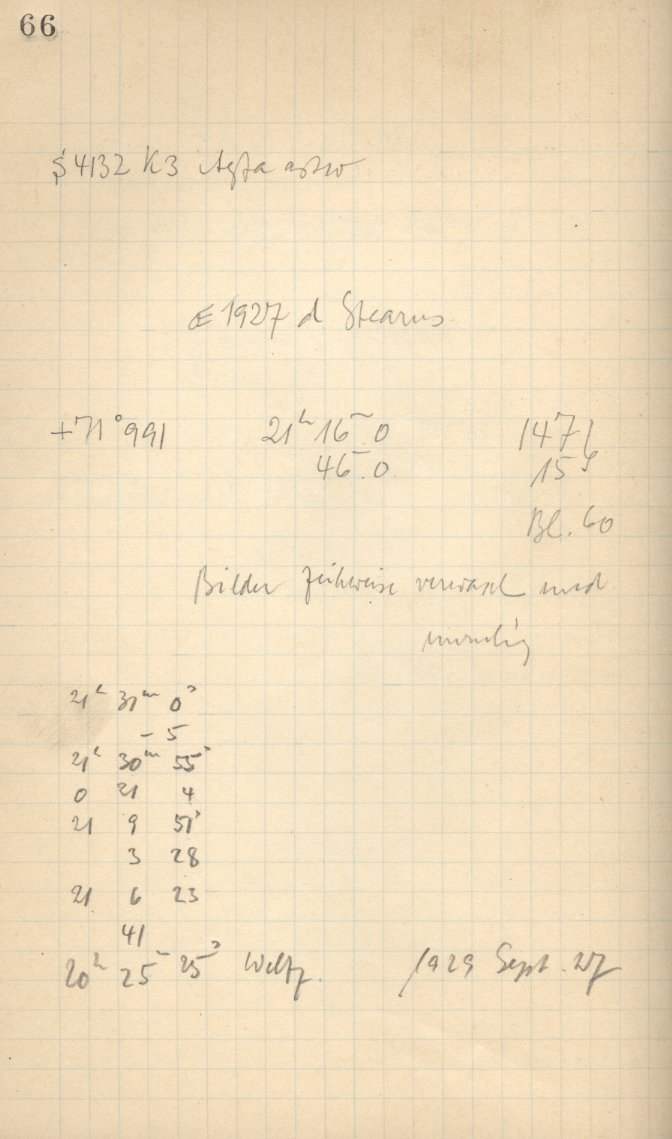 66
§4132 K3 Agfa astro
1927 d Stearns
+71°991 21ʰ 16ᵐ.0 1471
46ᵐ.0 15ˢ
Bl. 60
Bilder teilweise verwaschen und
unruhig
21ʰ 31ᵐ 0ˢ
- 5
21ʰ 30ᵐ 55ˢ
0 21 4
21 9 51ˢ
3 28
21 6 23
41
20ʰ 25ᵐ 25ˢ Weltz. 1929 Sept. 27